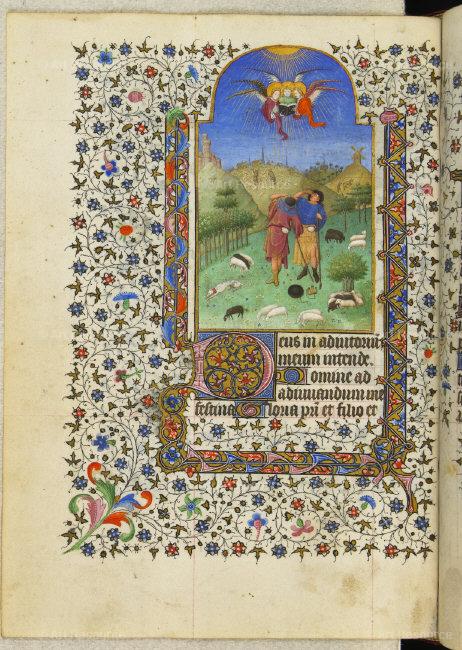 Deus in adiutoriū
meum intende.
Domine ad
adiuuandum me
festina Gloria pr̄i et filio et